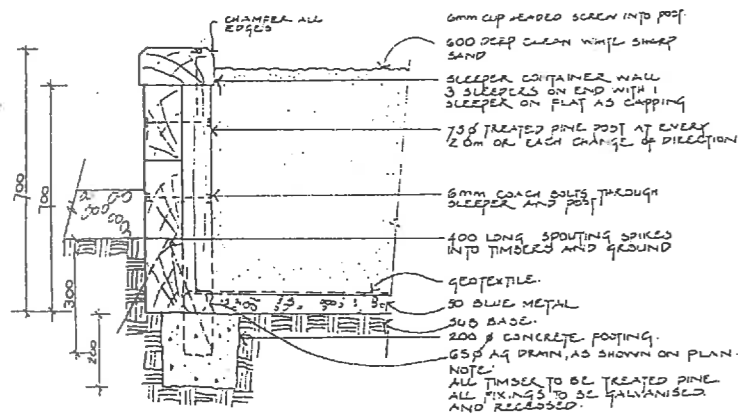 CHAMFER ALL
EDGES
6mm CUP HEADED SCREW INTO POST.
600 DEEP CLEAN WHITE SHARP
SAND
SLEEPER CONTAINER WALL
3 SLEEPERS ON END WITH 1
SLEEPER ON FLAT AS CAPPING
75Ø TREATED PINE POST AT EVERY
2.0m OR EACH CHANGE OF DIRECTION
6mm COACH BOLTS THROUGH
SLEEPER AND POST
400 LONG SPOUTING SPIKES
INTO TIMBERS AND GROUND
GEOTEXTILE.
50 BLUE METAL
SUB BASE.
200 Ø CONCRETE FOOTING.
65Ø AG DRAIN, AS SHOWN ON PLAN.
NOTE:
ALL TIMBER TO BE TREATED PINE
ALL FIXINGS TO BE GALVANISED
AND RECESSED.
700
700
300
200